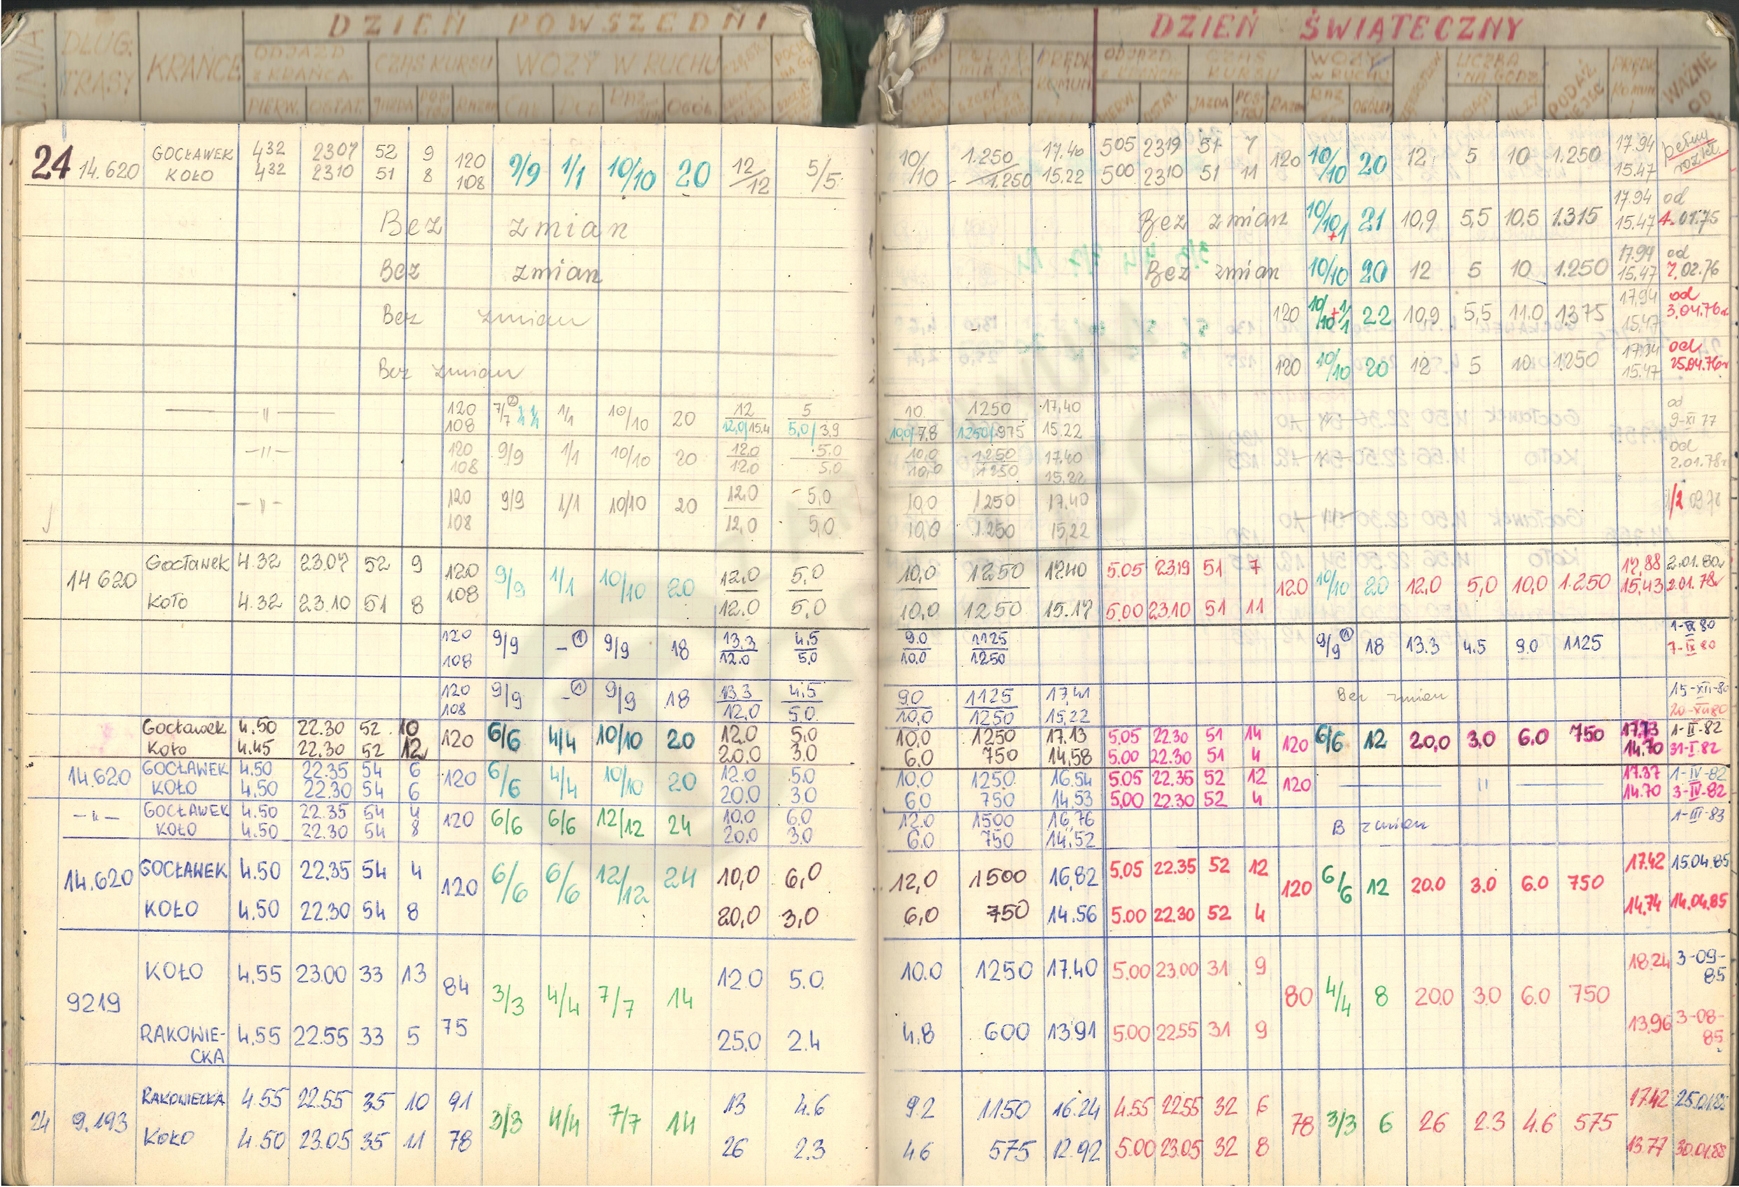 DZIEŃ POWSZEDNI DZIEŃ ŚWIĄTECZNY
LINIA DŁUG. TRASY KRAŃCE ODJAZD Z KRAŃCA CZAS KURSU WOZY W RUCHU
PIERW. OSTAT. JAZDA RAZEM OGÓŁ
WAŻNE OD
24 14.620 GOCŁAWEK 432 2307 52 9 120 9/9 1/1 10/10 20 12/12 5/5 10/10 1.250 17.40 505 2319 51 7 120 10/10 20 12 5 10 1.250 17.94
KOŁO 432 2310 51 8 108 1.250 15.22 500 2310 51 11 15.47
Bez zmian Bez zmian 10/10 1 21 10,9 5,5 10,5 1.315 17.94 15.47 od 1.01.75
Bez zmian Bez zmian 10/10 20 12 5 10 1.250 17.94 15.47 od 2.02.76
Bez zmian 120 10/10 + 1/1 22 10,9 5,5 11.0 1375 17.94 15.47 od 3.04.76r
Bez zmian 120 10/10 20 12 5 10 1250 15.47 od 25.04.76r
— " — 120 108 7/7 1/1 10/10 20 12 5 10. 1250 17,40 od 9-XI 77
12,0/15.4 5,0/3,9 10,0/7,8 1250/975 15.22
—"— 120 108 9/9 1/1 10/10 20 12.0 12.0 5.0 5,0 10,0 10,0 1250 1250 17.40 15.22 od 2.01.78r
—"— 120 108 9/9 1/1 10/10 20 12.0 12,0 5,0 5,0 10,0 10,0 1250 1.250 17.40 15,22
14 620 Gocławek 4.32 23.07 52 9 120 9/9 1/1 10/10 20 12.0 5,0 10,0 1250 1740 5.05 23.19 51 7 120 10/10 20 12,0 5,0 10,0 1.250 17,88 2.01.80r
Koło 4.32 23.10 51 8 108 12.0 5,0 10,0 1250 15.17 5.00 23.10 51 11 15,43 2.01.78r
120 108 9/9 – ① 9/9 18 13,3 12.0 4.5 5,0 9.0 10,0 1125 1250 9/9 ① 18 13.3 4.5 9.0 1125 1-IX 80 7-IX 80
120 108 9/9 – ① 9/9 18 13.3 12,0 4.5 5.0 9.0 10,0 1125 1250 17,41 15,22 Bez zmian 15-XII-80 20-XII 80
Gocławek 4.50 22.30 52 10 120 6/6 4/4 10/10 20 12.0 5.0 10.0 1250 17.13 5,05 22.30 51 14 120 6/6 12 20,0 3.0 6.0 750 17,73 1-II-82
Koło 4.45 22.30 52 12 20.0 3.0 6.0 750 14,58 5.00 22.30 51 4 14.70 31-I.82
14.620 GOCŁAWEK 4.50 22.35 54 6 120 6/6 4/4 10/10 20 12.0 5.0 10.0 1250 16.54 5.05 22,35 52 12 120 — " — 17.37 1-IV-82
KOŁO 4.50 22.30 54 6 20.0 3.0 6.0 750 14.53 5,00 22.30 52 4 14.70 3-IV-82
—"— GOCŁAWEK 4.50 22.35 54 4 120 6/6 6/6 12/12 24 10.0 6.0 12.0 1500 16,76 B zmian 1-III-83
KOŁO 4.50 22.30 54 8 20.0 3.0 6.0 750 14,52
14.620 GOCŁAWEK 4.50 22.35 54 4 120 6/6 6/6 12/12 24 10,0 6,0 12,0 1500 16,82 5,05 22.35 52 12 120 6/6 12 20.0 3.0 6.0 750 17.42 15.04.85
KOŁO 4.50 22.30 54 8 20,0 3,0 6,0 750 14.56 5.00 22.30 52 4 14,74 14.04.85
9219 KOŁO 4.55 23.00 33 13 84 3/3 4/4 7/7 14 12.0 5.0 10.0 1250 17.40 5.00 23.00 31 9 80 4/4 8 20.0 3.0 6.0 750 18.24 3-09-85
RAKOWIE-CKA 4.55 22.55 33 5 75 25.0 2.4 4.8 600 13.91 5.00 22.55 31 9 13.96 3-08-85
24 9.193 RAKOWIECKA 4.55 22.55 35 10 91 3/3 4/4 7/7 14 13 4.6 9.2 1150 16.24 4.55 22.55 32 6 78 3/3 6 26 2.3 4.6 575 17.42
KOŁO 4.50 23.05 35 11 78 26 2.3 4.6 575 12.92 5.00 23.05 32 8 13.77 30.01.88